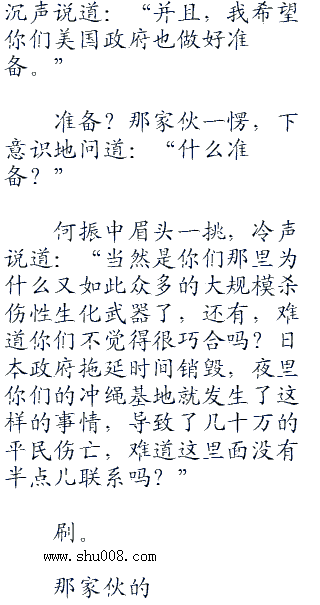 沉声说道：“并且，我希望
你们美国政府也做好准
备。”
准备？那家伙一愣，下
意识地问道：“什么准
备？”
何振中眉头一挑，冷声
说道：“当然是你们那里为
什么又如此众多的大规模杀
伤性生化武器了，还有，难
道你们不觉得很巧合吗？日
本政府拖延时间销毁，夜里
你们的冲绳基地就发生了这
样的事情，导致了几十万的
平民伤亡，难道这里面没有
半点儿联系吗？”
刷。
www.shu008.com
那家伙的